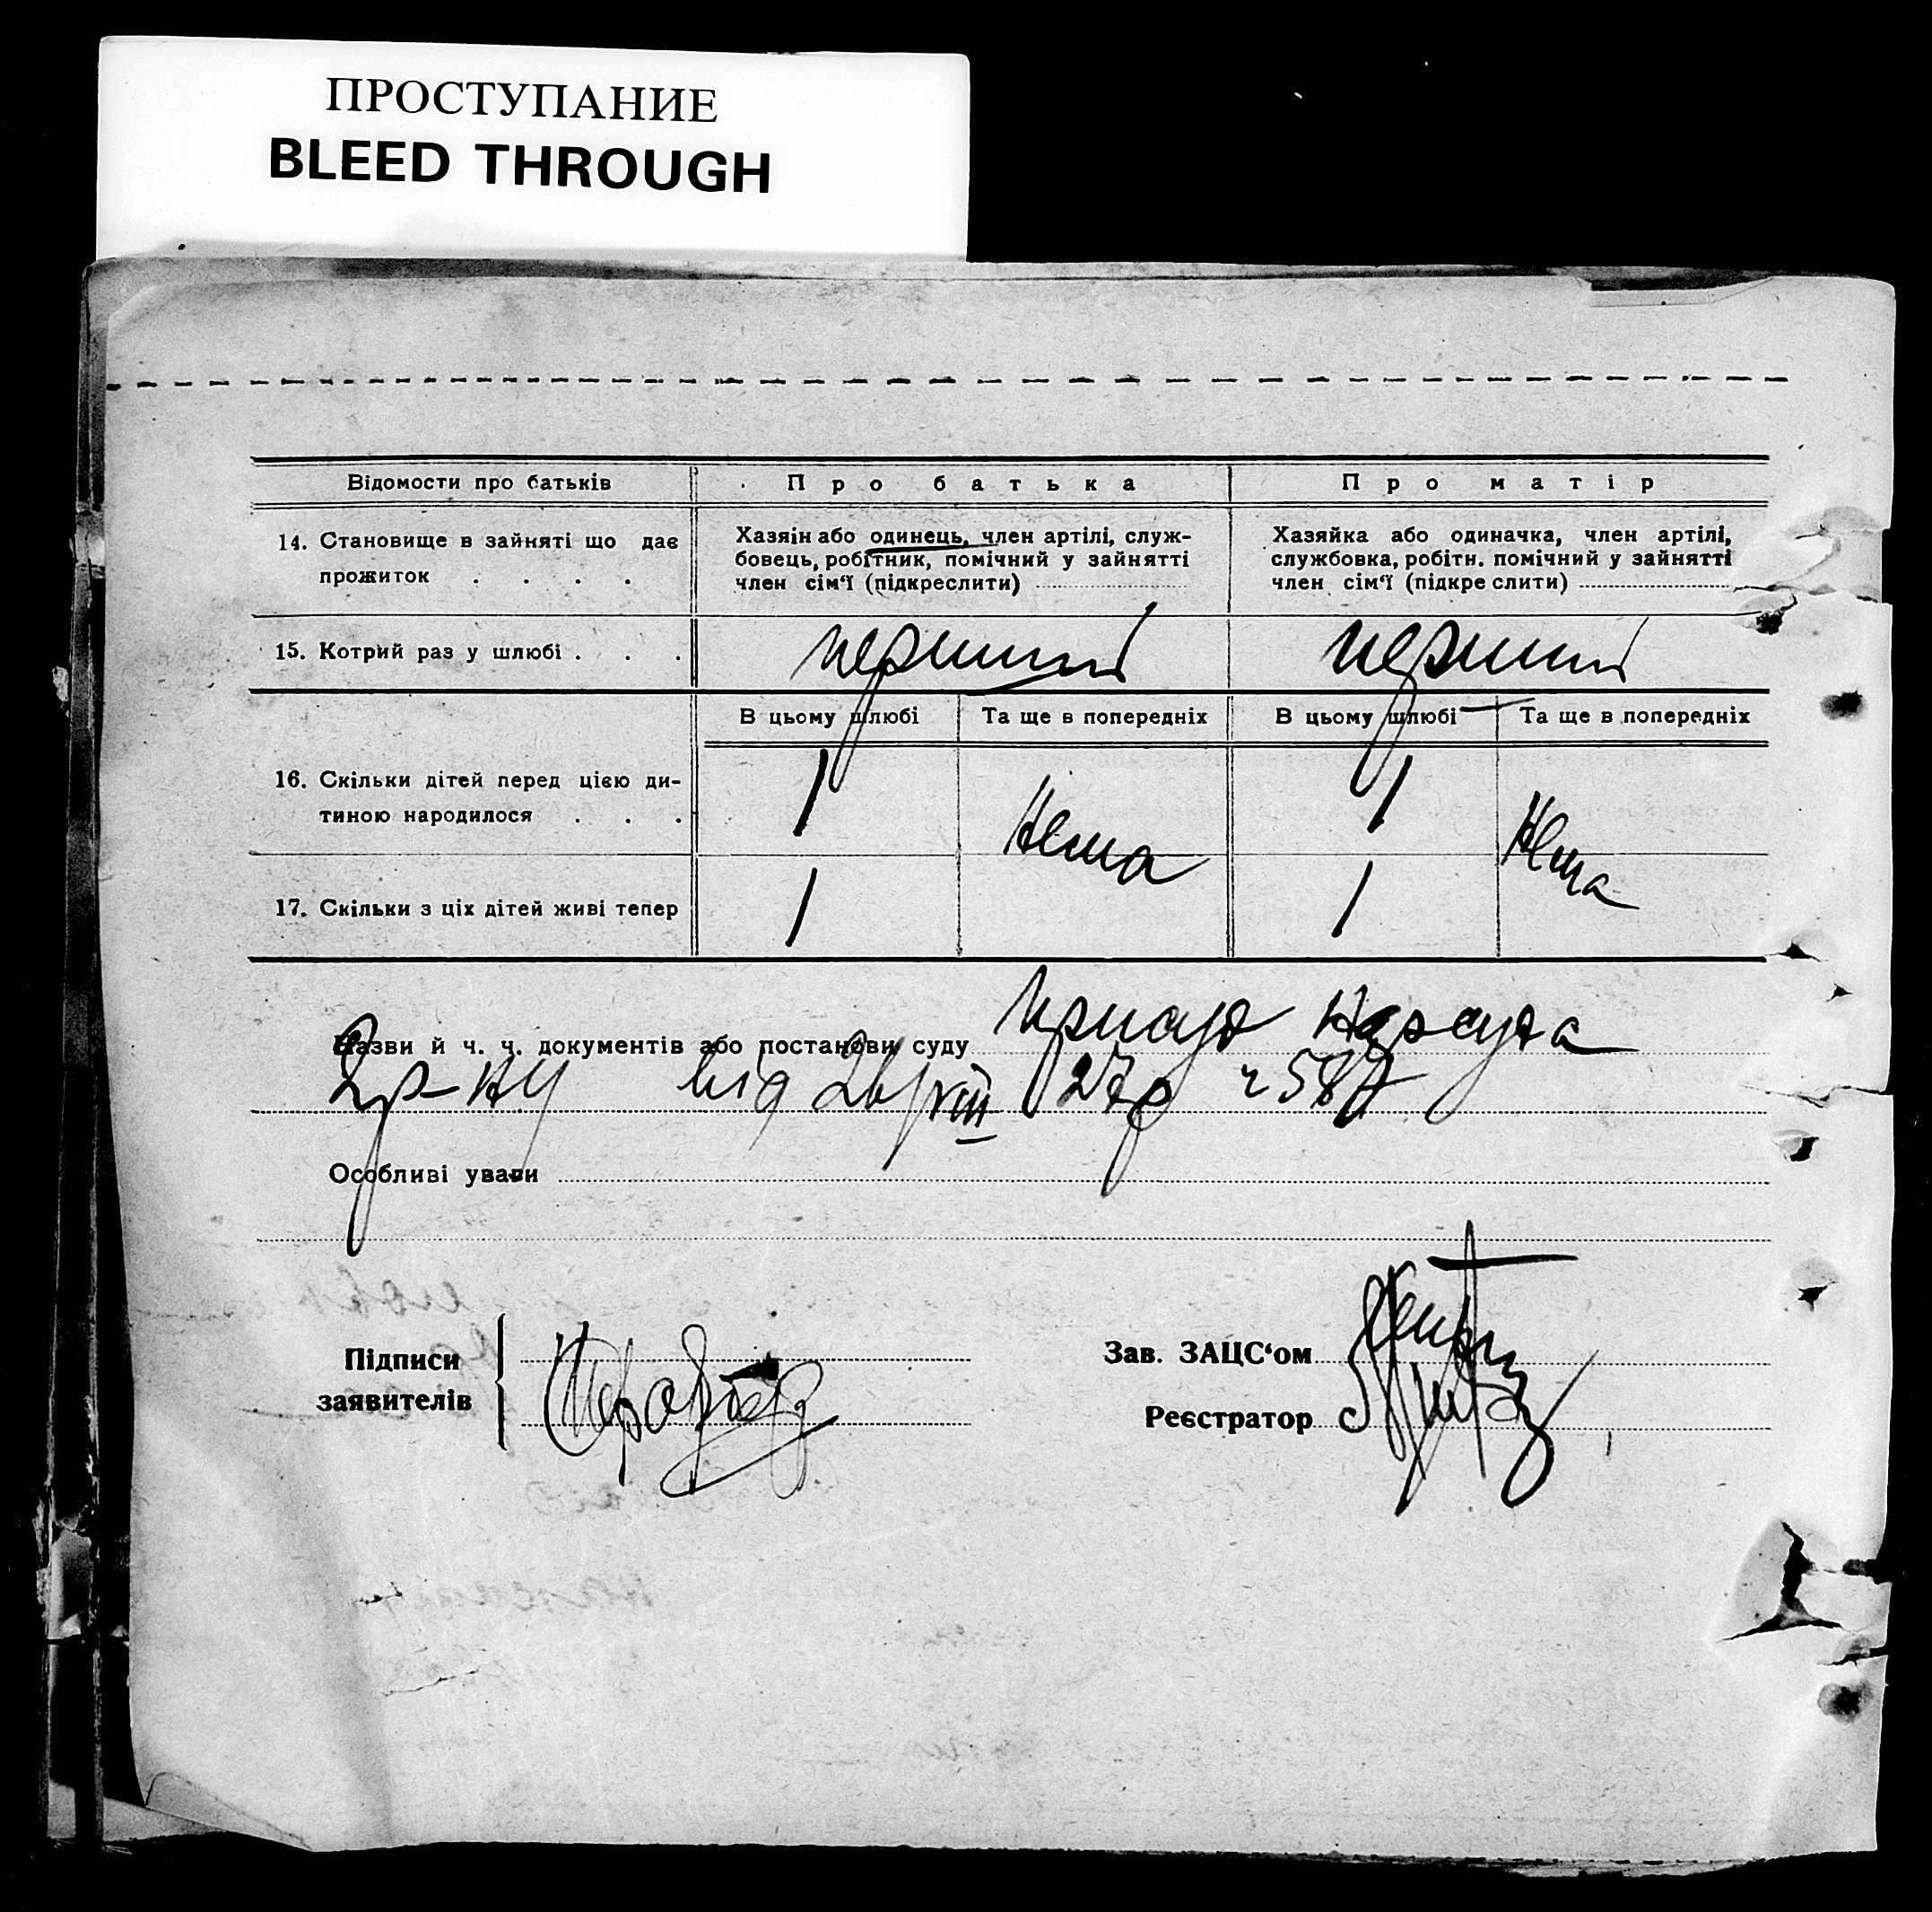 ПРОСТУПАНИЕ
BLEED THROUGH
Відомости про батьків
Про батька
Про матір
14. Становище в зайняті що дає
прожиток . . . .
Хазяін або одинець, член артілі, служ-
бовець, робітник, помічний у зайнятті
член сім‘ї (підкреслити)
Хазяйка або одиначка, член артілі,
службовка, робітн. помічний у зайнятті
член сім‘ї (підкре слити)
15. Котрий раз у шлюбі . . .
перший
перший
В цьому шлюбі
Та ще в попередніх
В цьому шлюбі
Та ще в попередніх
16. Скільки дітей перед цією ди-
тиною народилося . . .
1
Нема
1
Нема
17. Скільки з ціх дітей живі тепер
1
1
Назви й ч. ч. документів або постанови суду
від 26/VIII 27р ч 587
Особливі уваги
Підписи
заявителів
Зав. ЗАЦС‘ом
Реєстратор